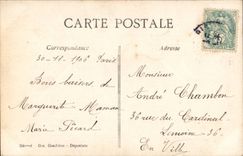 CARTE POSTALE
Correspondance
Adresse
30-11-906 Paris
Bons baisers de
Marguerite - Maman
Marie Picard
Monsieur
André Chambon
36 rue du Cardinal
Lemoine - 36 -
En Ville